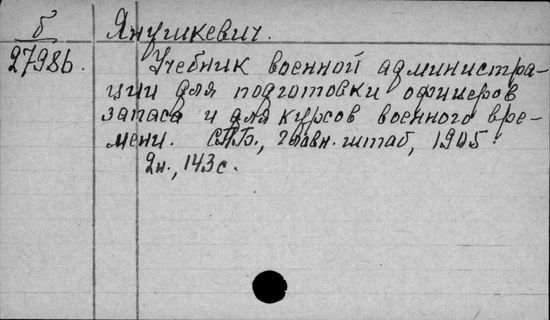 б
27986.
Янушкевич.
Учебник военной администра-
ции для подготовки офицеров
запаса и для курсов военного вре-
мени. СПБ., Главн. штаб, 1905.
2н., 143 с.